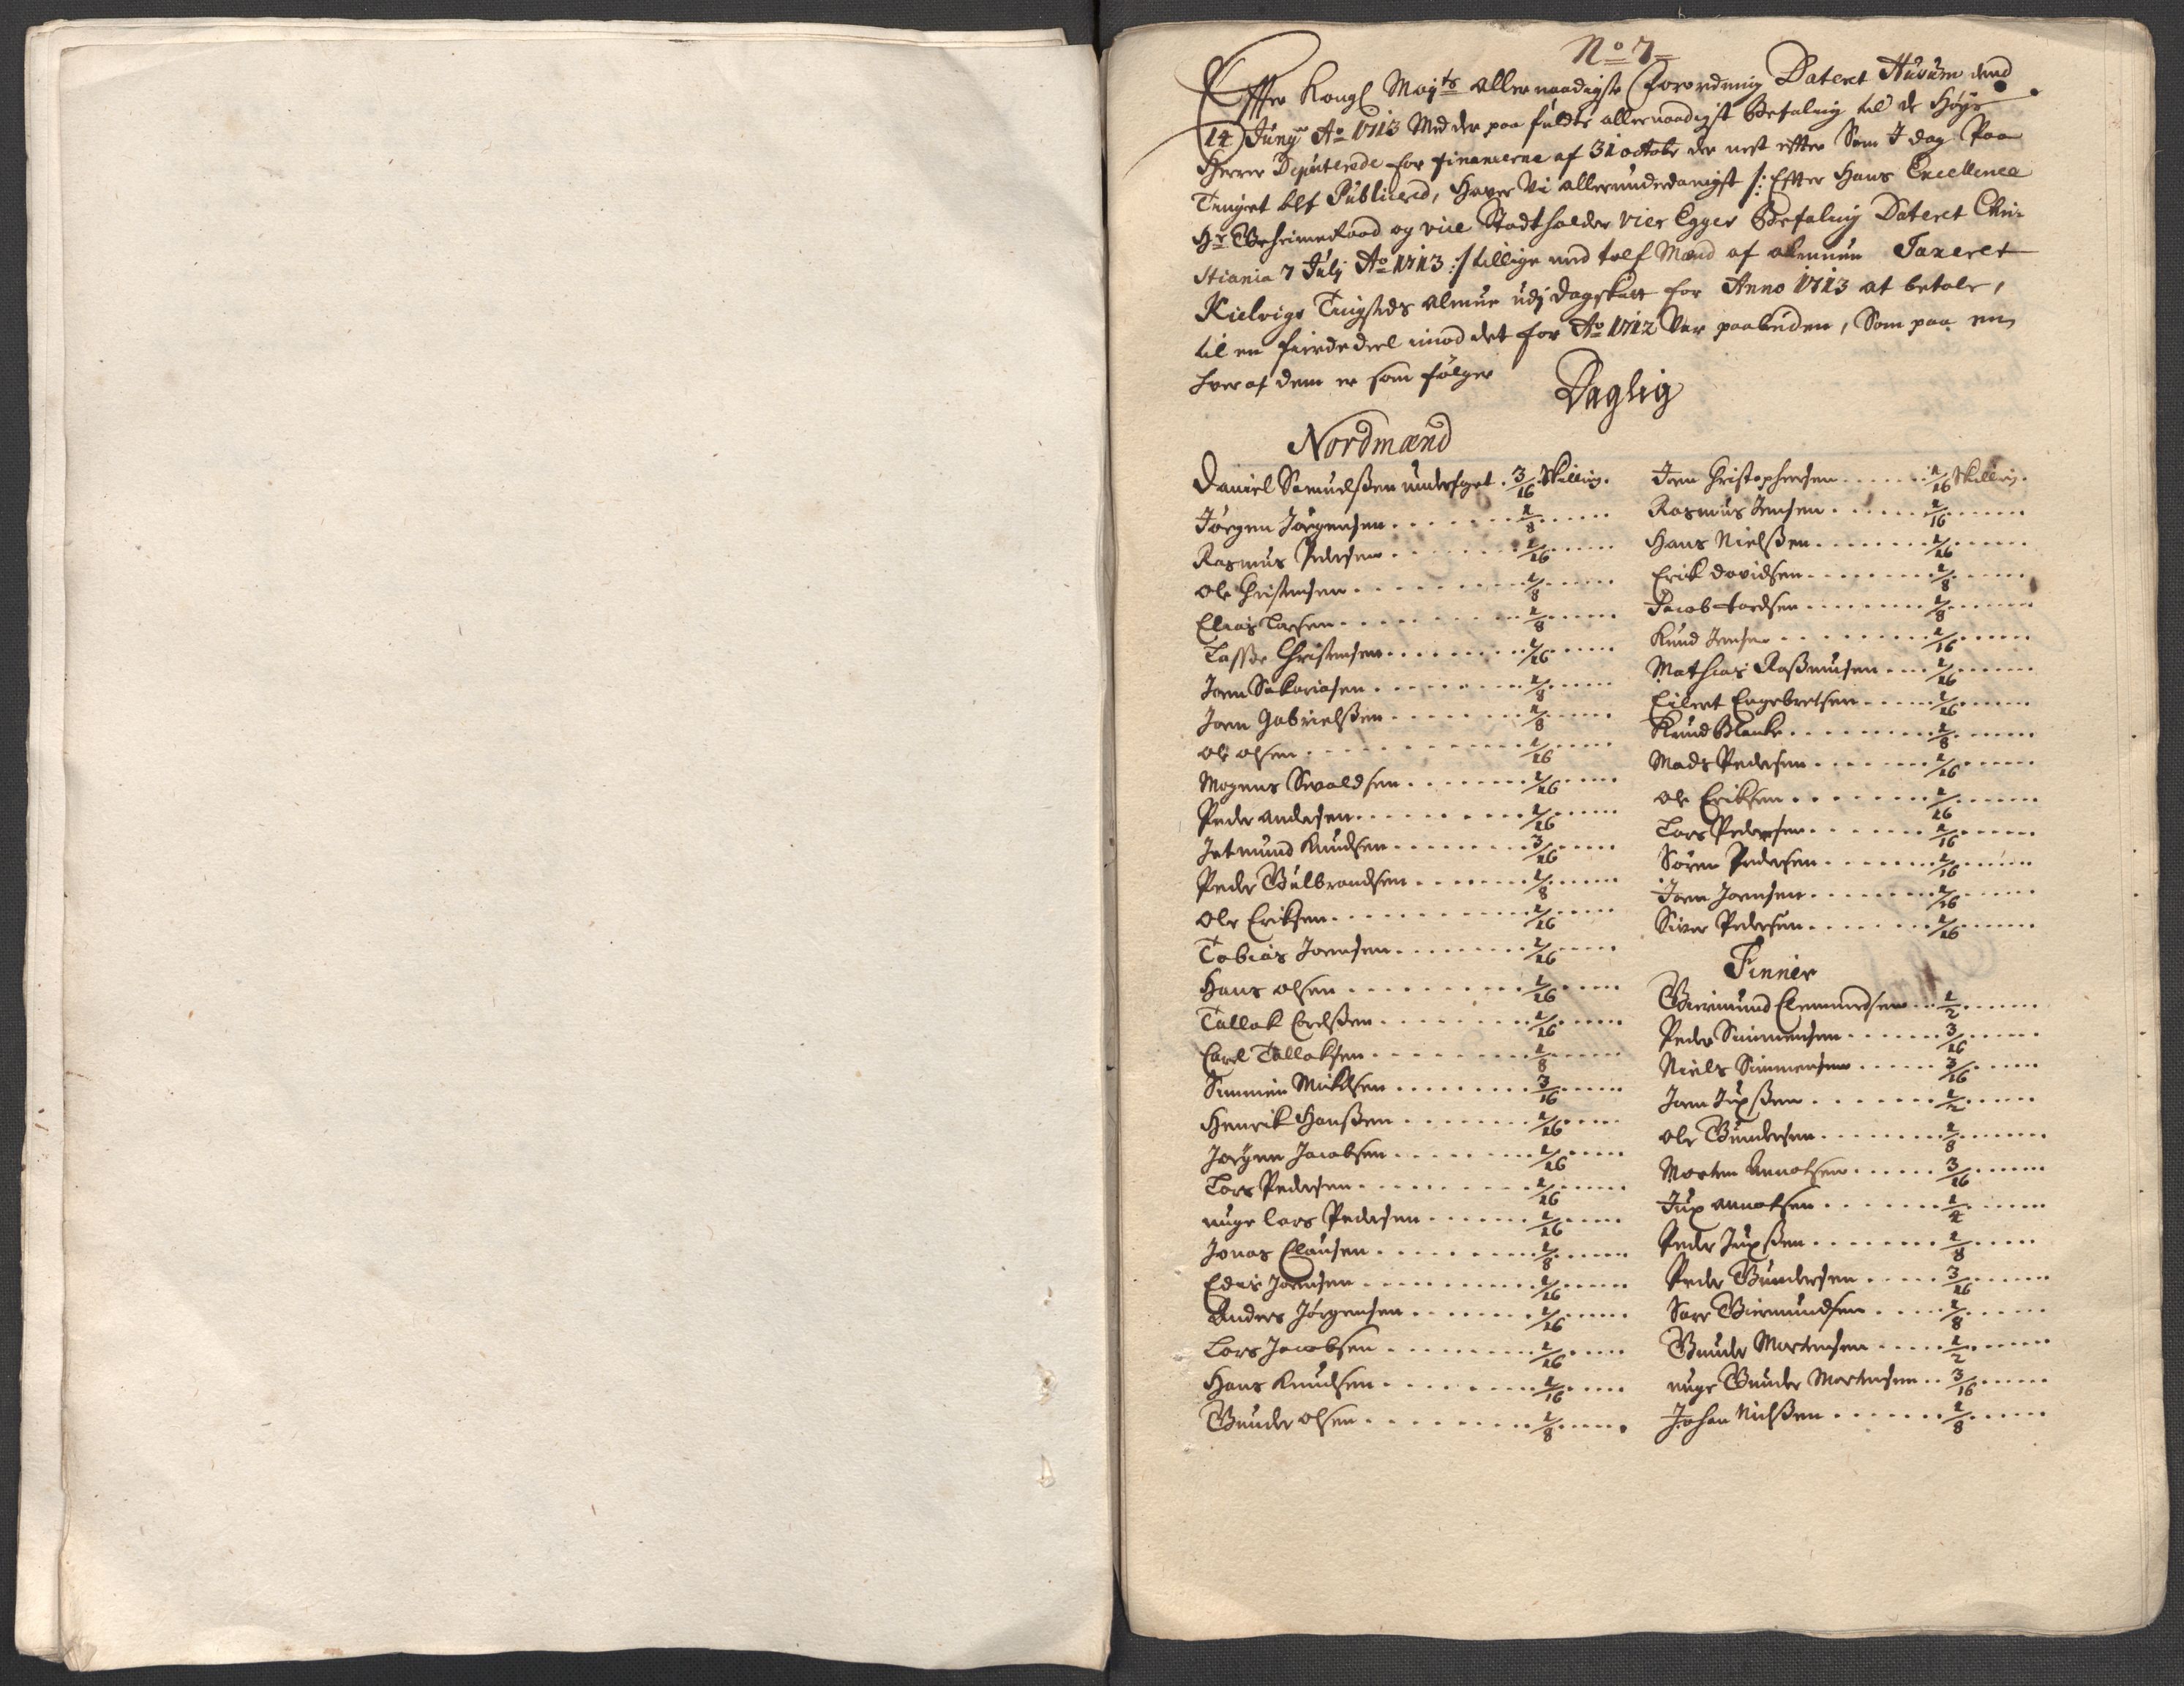 No 7
Efter Kongl Maytz allernaadigste Forordning Dateret Husum dend
14 Junij Ao 1713 Med der paa fuldte allernaadigst Befaling til de Høye
Herrer Deputerede for Financerne af 31 octobr der nest efter Som I dag Paa
Tinget blef Publicered, Hafver Vi allerunderdanigst /: Efter Hans Excellence
Hr Geheimeraad og vice Stadtholder Vier Egger Befaling Dateret Chri-
stiania 7 Julij Ao 1713 :/ tillige med tolf Mænd af almuen Taxeret
Kielvigs Tingsteds almue udj dagskatt for Anno 1713 at betale,
til en fierdedeel imod det for Ao 1712 Var paabuden, Som paa en
hver af dem er som følger
Daglig
Nordmænd
Daniel Samuelssen underfoget . 3/16 Skilling.
Jørgen Jørgensen . 1/8
Rasmus Pedersen . 1/16
Ole Christensen . 1/8
Elias Larsen . 1/8
Lasse Christensen . 1/16
Joen Sakariasen . 1/8
Joen Gabrielssen . 1/8
Ole Olsen . 1/16
Mogens Sivaldsen . 1/16
Peder Andersen . 1/16
Jetmund Knudsen . 3/16
Peder Gulbrandsen . 1/8
Ole Eriksen . 1/16
Tobias Joensen . 1/16
Hans Olsen . 1/16
Tallak Carlssen . 1/16
Carl Tallaksen . 1/8
Simmen Mikelsen . 3/16
Henrik Hanssen . 1/16
Jørgen Jacobsen . 1/16
Lars Pedersen . 1/16
unge Lars Pedersen . 1/16
Jonas Clausen . 1/8
Joensen . 1/16
Anders Jørgensen . 1/16
Lars Jacobsen . 1/16
Hans Knudsen . 1/16
Gunder Olsen . 1/8
Joen Christophersen . 1/16 Skilling.
Rasmus Jensen . 1/16
Hans Nielssen . 1/16
Erik Davidsen . 1/8
Jacob . 1/8
Knud Jensen . 1/16
Mathias Rassmusen . 1/16
Eilert Engebretsen . 1/16
Knud Blanke . 1/8
Mads Pedersen . 1/16
Ole Eriksen . 1/16
Lars Pedersen . 1/16
Søren Pedersen . 1/16
Joen Joensen . 1/16
Siver Pedersen . 1/16
Finner
Giermund Clemmedsen . 1/2
Peder Simmensen . 3/16
Niels Simmensen . 3/16
Joen Jupssen . 1/2
Ole Gundersen . 1/8
Morten Amotsen . 3/16
Jup Amotsen . 1/4
Peder Jupssen . 1/8
Peder Gundersen . 3/16
Sare Giermundsen . 1/8
Gunder Mortensen . 1/2
unge Gunder Mortensen . 3/16
Johan Nielssen . 1/8